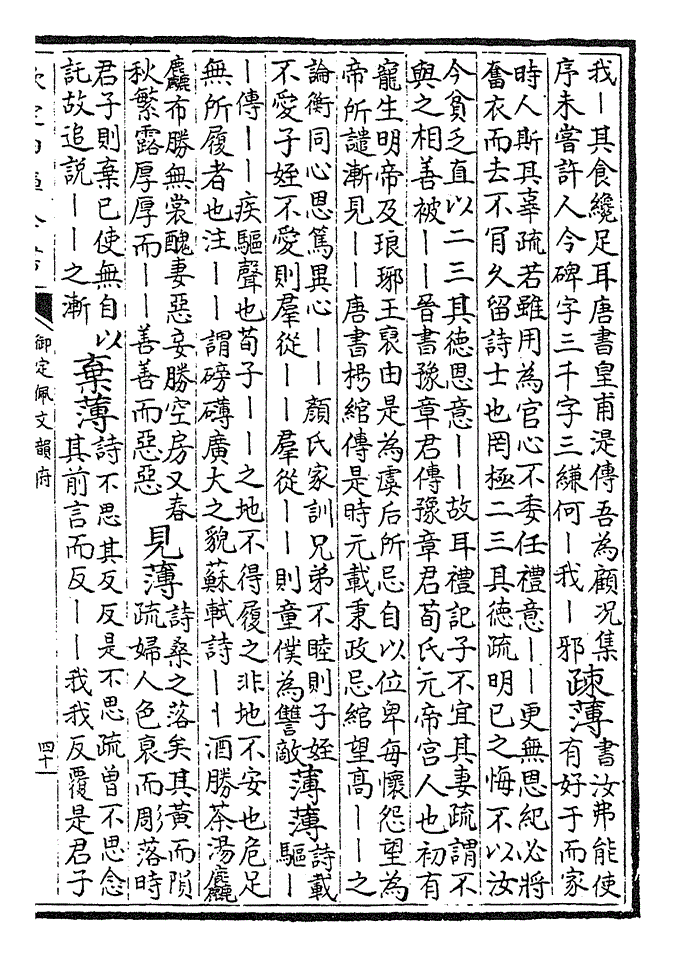 我丨其食纔足耳唐書皇甫湜傳吾為顧况集
序未嘗許人今碑字三千字三縑何丨我丨邪
疎薄
書汝弗能使
有好于而家
時人斯其辜疏若雖用為官心不委任禮意丨丨更無恩紀必將
奮衣而去不肎久留詩士也罔極二三其德疏明已之悔不以汝
今貧乏直以二三其德恩意丨丨故耳禮記子不宜其妻疏謂不
與之相善被丨丨晉書豫章君傳豫章君荀氏元帝宮人也初有
寵生明帝及琅邪王裒由是為虞后所忌自以位卑每懷怨望為
帝所譴漸見丨丨唐書楊綰傳是時元載秉政忌綰望高丨丨之
論衡同心恩篤異心丨丨顏氏家訓兄弟不睦則子姪
不愛子姪不愛則羣從丨丨羣從丨丨則童僕為讐敵
薄薄
詩載
驅丨
丨傳丨丨疾驅聲也荀子丨丨之地不得履之非地不安也危足
無所履者也注丨丨謂磅礴廣大之貌蘇軾詩丨丨酒勝茶湯麤
麤布勝無裳醜妻惡妾勝空房又春
秋繁露厚厚而丨丨善善而惡惡
見薄
詩桑之落矣其黃而隕
疏婦人色衰而彫落時
君子則棄已使無自以
託故追説丨丨之漸
棄薄
詩不思其反反是不思疏曾不思念
其前言而反丨丨我我反覆是君子
御定佩文韻府
四十一